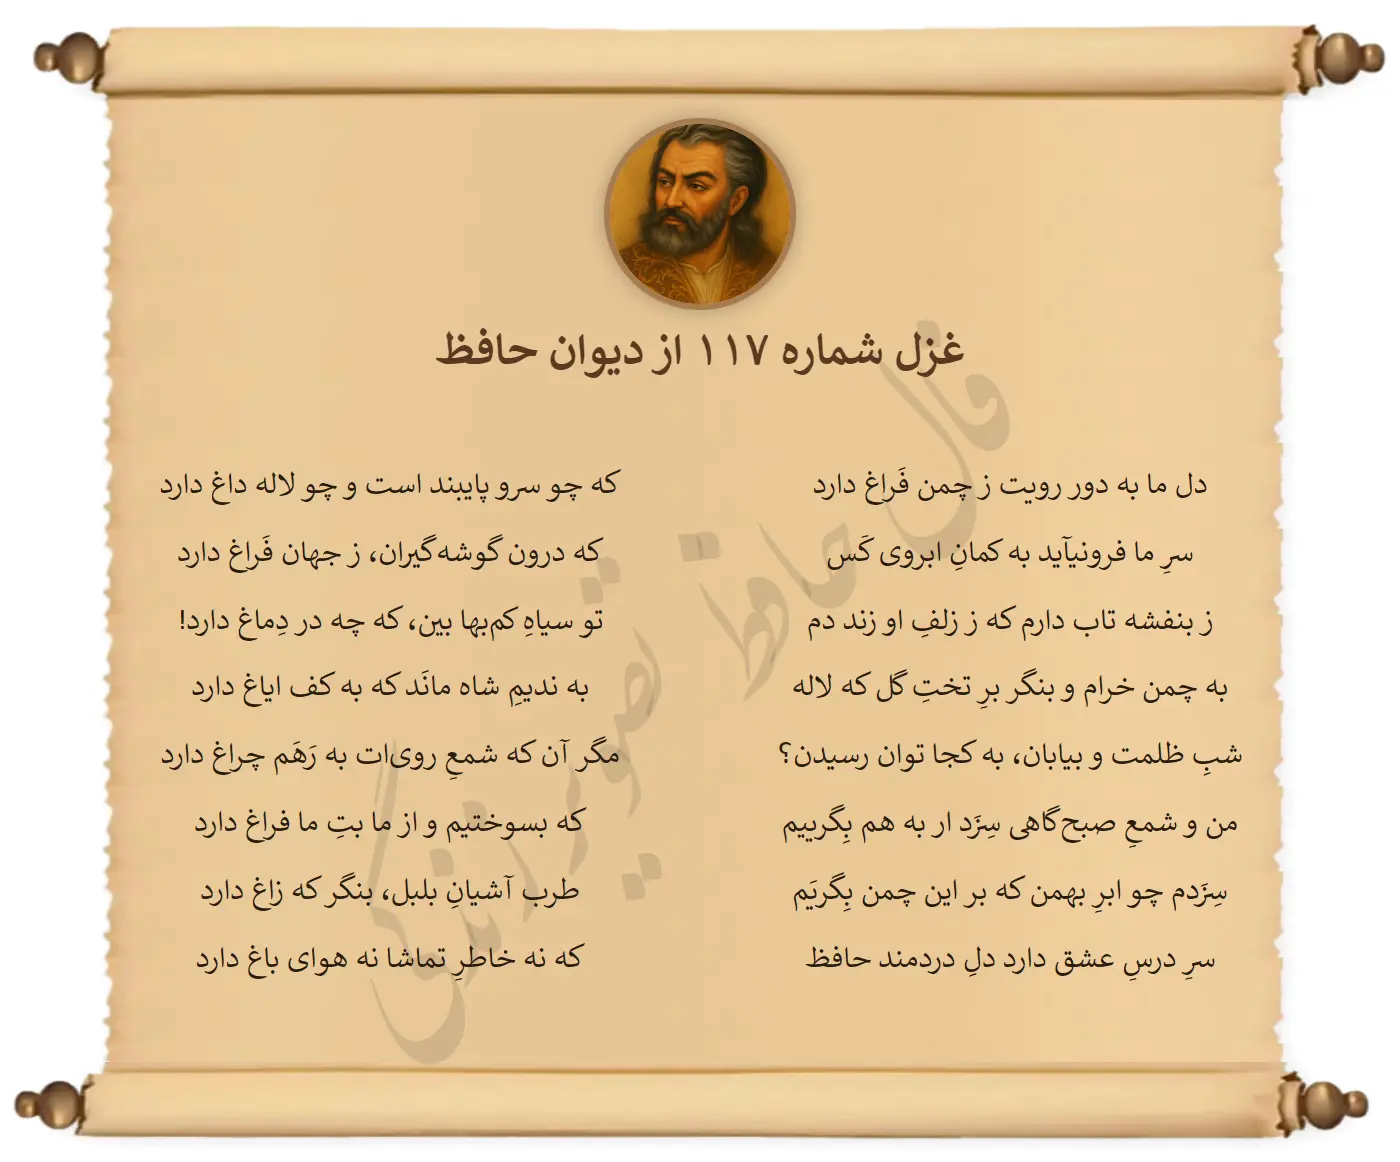 غزل شماره ۱۱۷ از دیوان حافظ
دل ما به دور رویت ز چمن فَراغ دارد که چو سرو پایبند است و چو لاله داغ دارد
سرِ ما فرونیآید به کمانِ ابروی کَس که درون گوشه‌گیران، ز جهان فَراغ دارد
ز بنفشه تاب دارم که ز زلفِ او زند دم تو سیاهِ کم‌بها بین، که چه در دِماغ دارد!
به چمن خرام و بنگر برِ تختِ گل که لاله به ندیمِ شاه مانَد که به کف ایاغ دارد
شبِ ظلمت و بیابان، به کجا توان رسیدن؟ مگر آن که شمعِ روی‌ات به رَهَم چراغ دارد
من و شمعِ صبح‌گاهی سِزَد ار به هم بِگرییم که بسوختیم و از ما بتِ ما فراغ دارد
سِزَدم چو ابرِ بهمن که بر این چمن بِگریَم طرب آشیانِ بلبل، بنگر که زاغ دارد
سرِ درسِ عشق دارد دلِ دردمند حافظ که نه خاطرِ تماشا نه هوای باغ دارد
فال حافظ تصویر زندگی